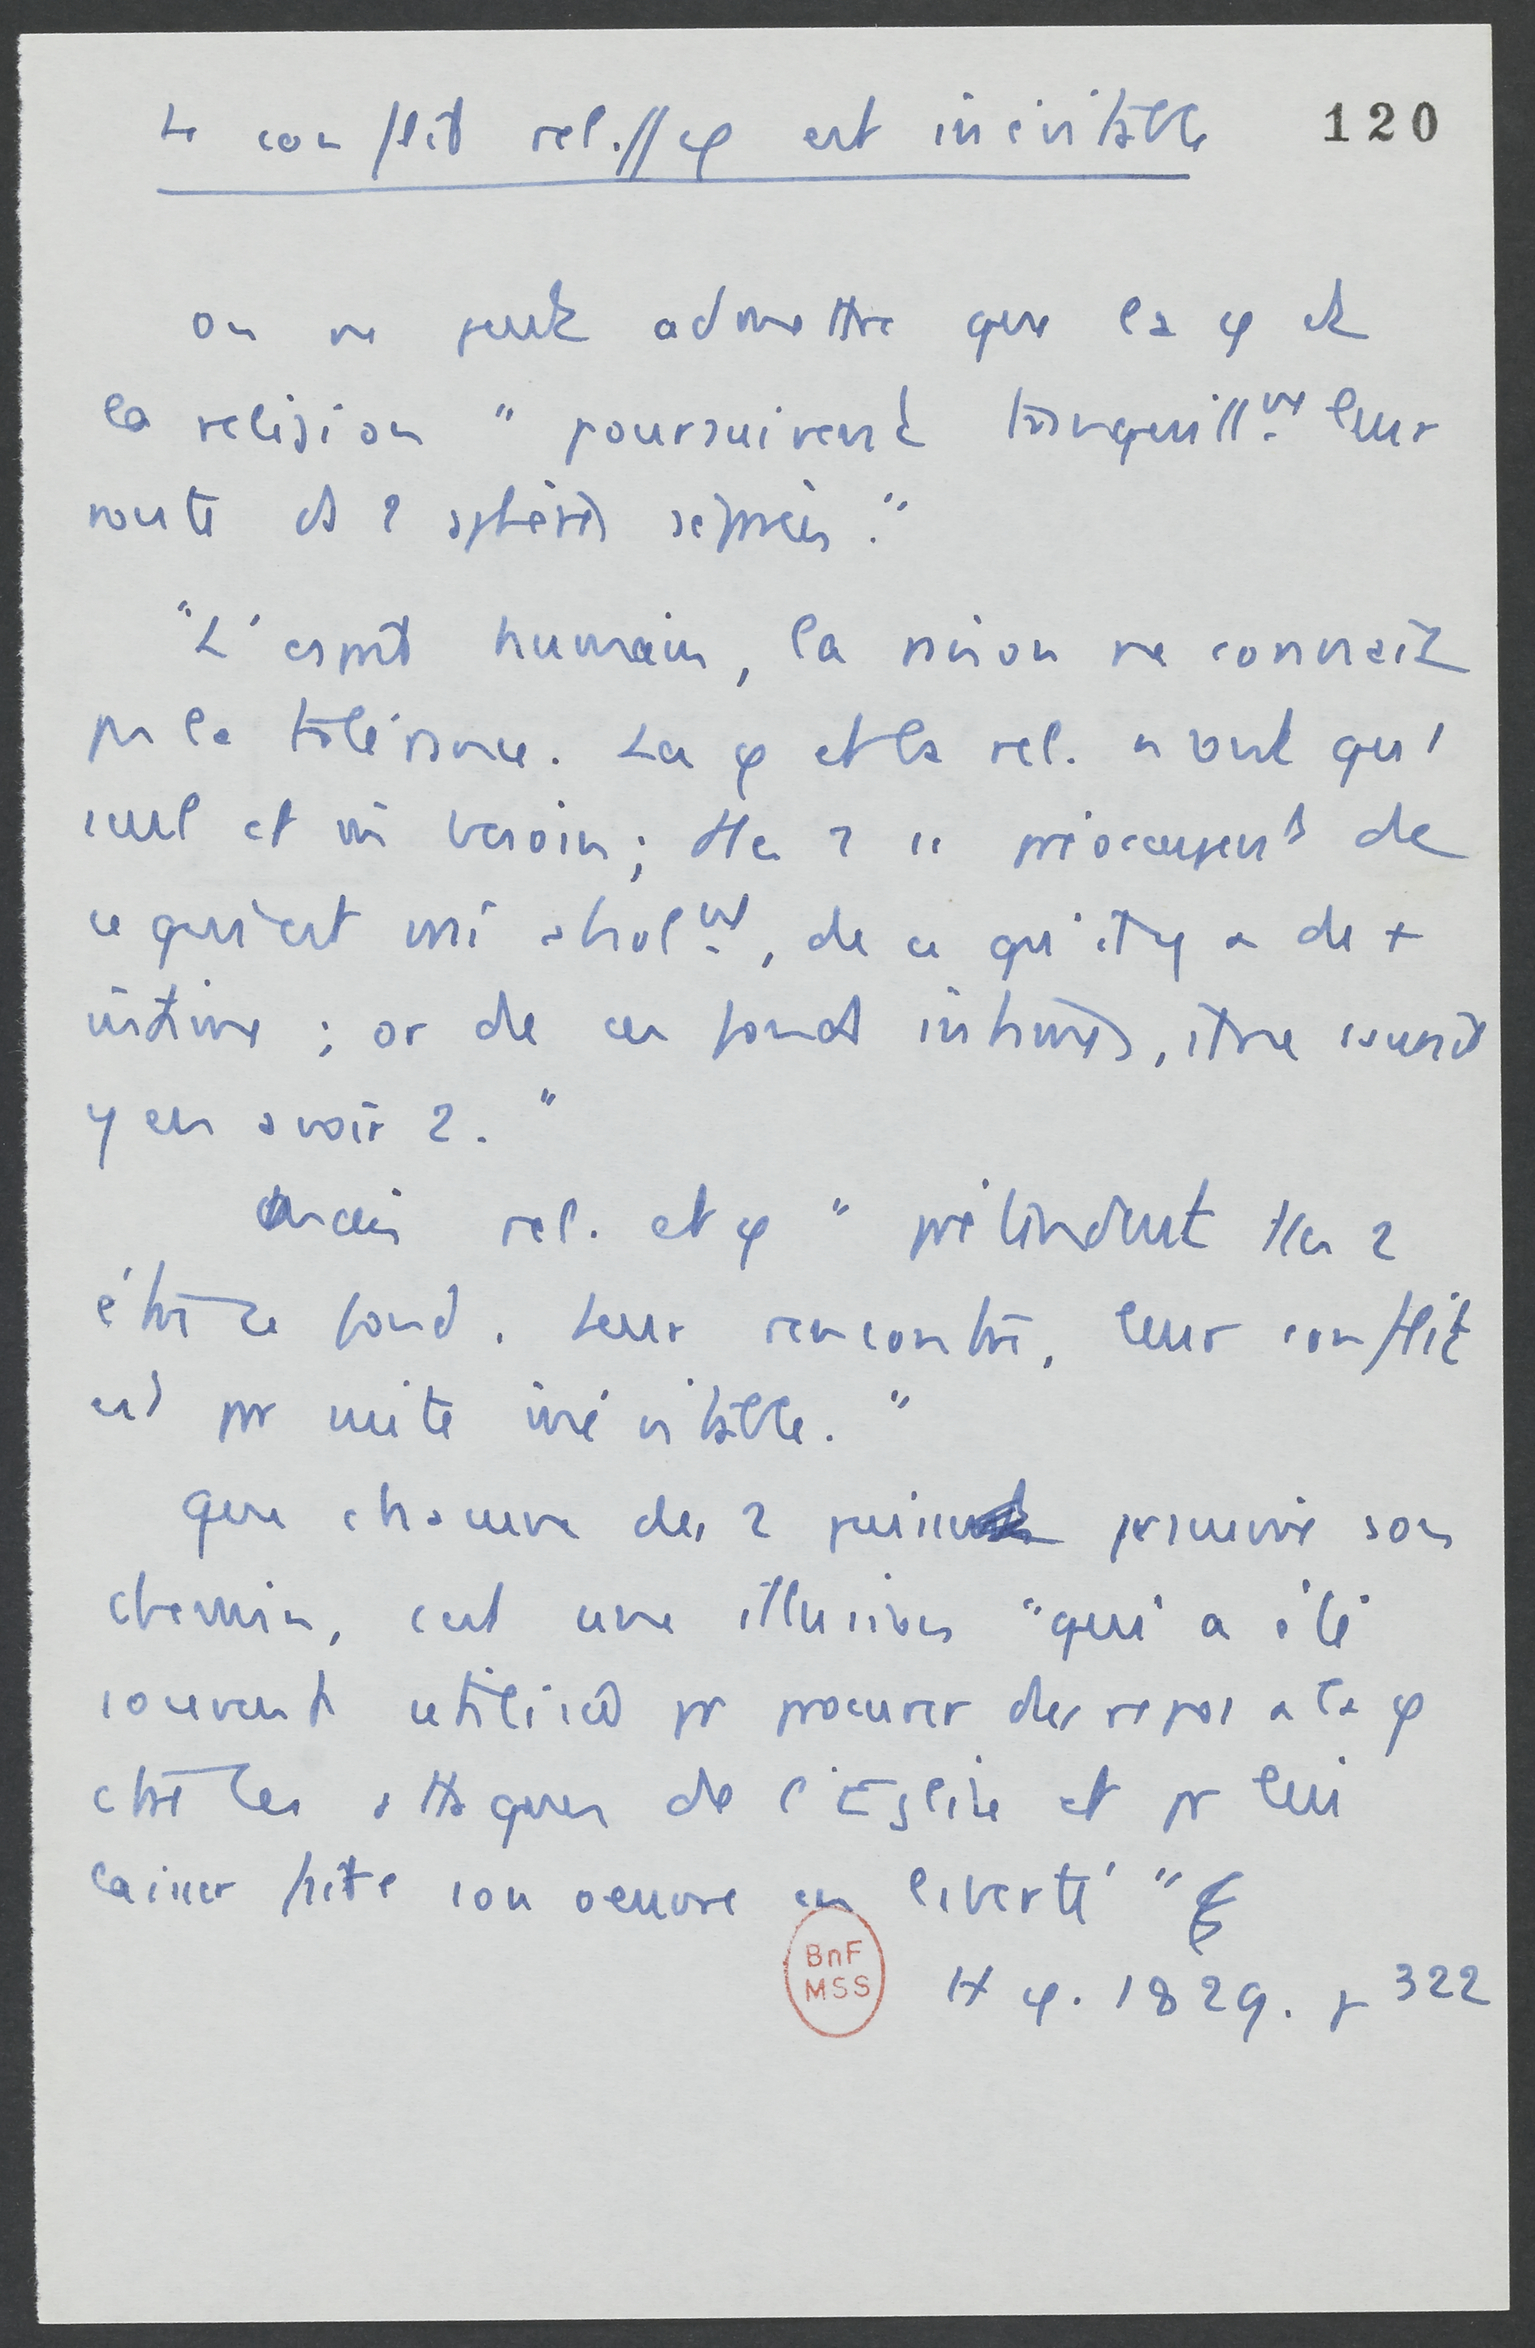 Le conflit rel. // φ est inévitable 120
On ne peut admettre que la φ et
la religion "poursuivent tranquillmt leur
route ds 2 sphères séparées."
"L'esprit humain, la raison ne connaît
pas la tolérance. La φ et la rel. n'ont qu'1
seul et mê besoin; ttes 2 s'préoccupent de
ce qui est vrai absolmt, de ce qu'il y a de +
intime; or de ces fonds intimes, il ne saurait
y en avoir 2."
Mais rel. et φ "prétendent ttes 2
être ce fond. Leur rencontre, leur conflit
est par suite inévitable."
Que chacune des 2 puisse poursuivre son
chemin, c'est une illusion "qui a été
souvent utilisée pr procurer du repos à la φ
ctre les attaques de l'Eglise et pr lui
laisser faire son oeuvre en liberté"
BnF
MSS
H φ. 1829. p 322